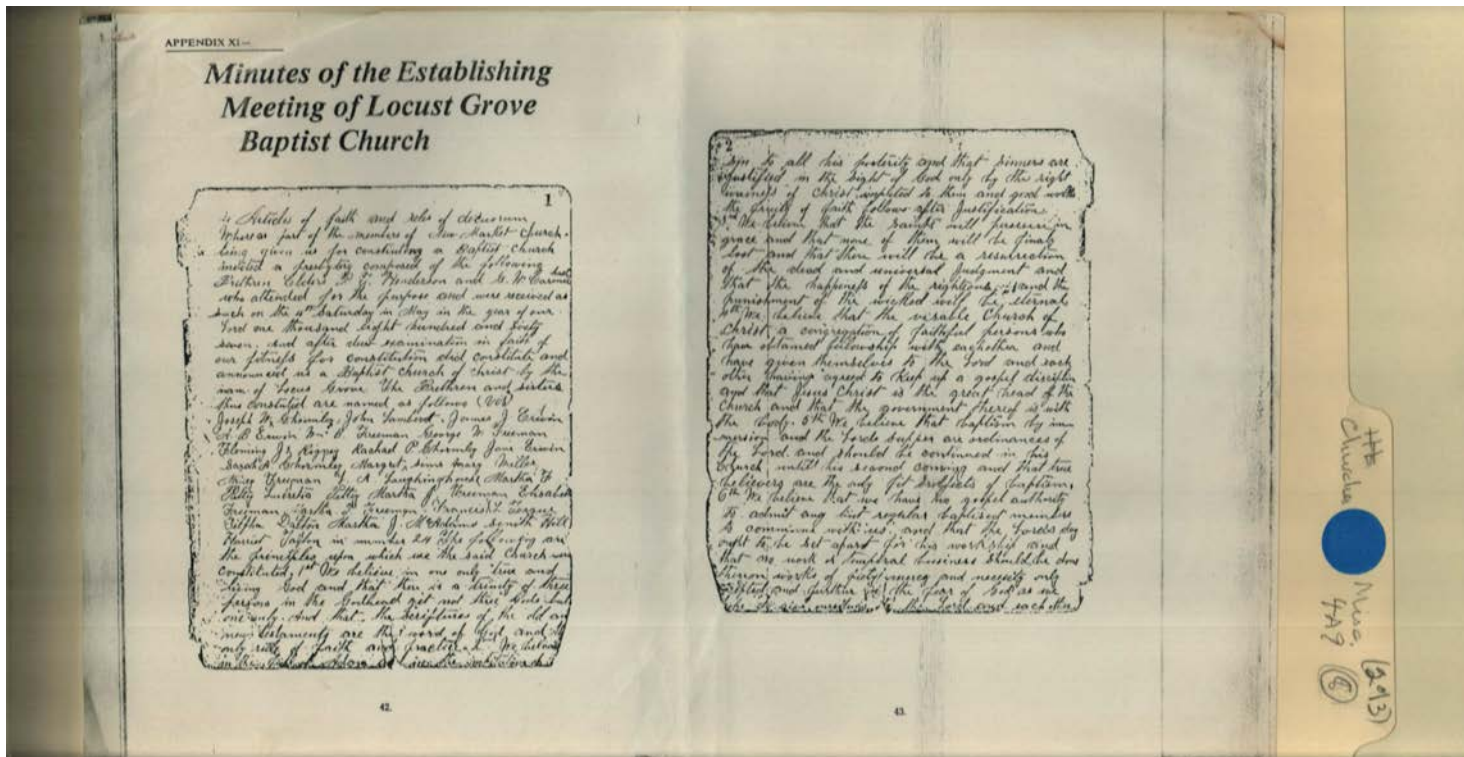 APPENDIX XI—
Minutes of the Establishing
Meeting of Locust Grove
Baptist Church
1
Articles of faith and rules of decorum
Whereas part of the members of New Market Church
being given us for constituting a Baptist Church
invited a presbytery composed of the following
Brethren Elders Henderson and G. W.
who attended for the purpose and were received as
such on the 4th Saturday in May in the year of our
Lord one thousand eight hundred and
seven. and after due examination in faith of
our fitness for constitution did constitute and
announced us a Baptist church of christ by the
nam of Locus Grove The Brethren and sisters
thus constituted are named as follows
Joseph W. Chormley John James J. Erwin
B Erwin Wm B. Freeman George W. Freeman
Fleming J. Rachael P. Chormley Jane Erwin
Sarah Chormley Margret Mary Miller
Freeman A. Laughinghouse Martha F
Petty Lucretia Petty Martha J. Freeman Elisabeth
Freeman Freeman
Dalton Martha J. McAdams Hill
Harriet in number 24 The following are
the principles upon which we the said Church were
constituted, 1st We believe in one only true and
living God and that there is a trinity of three
persons in the Godhead yet not three Gods but
one only. And that the Scriptures of the old an
new testaments are the word of God and the
only rule of faith and practice. We believe
in the
42.
2
to all his posterity and that sinners are
justified in the sight of God only by the right
of Christ imputed to them and good works
the fruits of faith follows after Justification
3rd We believe that the saints will in
grace and that none of them will be finaly
lost and that there will be a resurrection
of the dead and universal Judgment and
that the happiness of the righteous and the
punishment of the wicked will be eternal
4th We believe that the visable Church of
Christ a congregation of faithful persons who
have obtained fellowship with eachother and
have given themselves to the Lord and each
other having agreed to keep up a gospel
and that Jesus Christ is the great head of the
Church and that the government thereof is with
the body. 5th We believe that baptism by im
mersion and the Lords supper are ordinances of
the Lord and should be continued in his
church until his second coming and that true
believers are the only fit of baptism.
6th We believe that we have no gospel authority
to admit any but regular baptised members
to commune with us, and that the Lords day
ought to be set apart for his worship and
that no work or temporal business should be done
thereon works of piety mercy and necesity only
and further in the fear of God as we
the Lord and each other
43.
Churches
Misc.
4A9
(293)
8